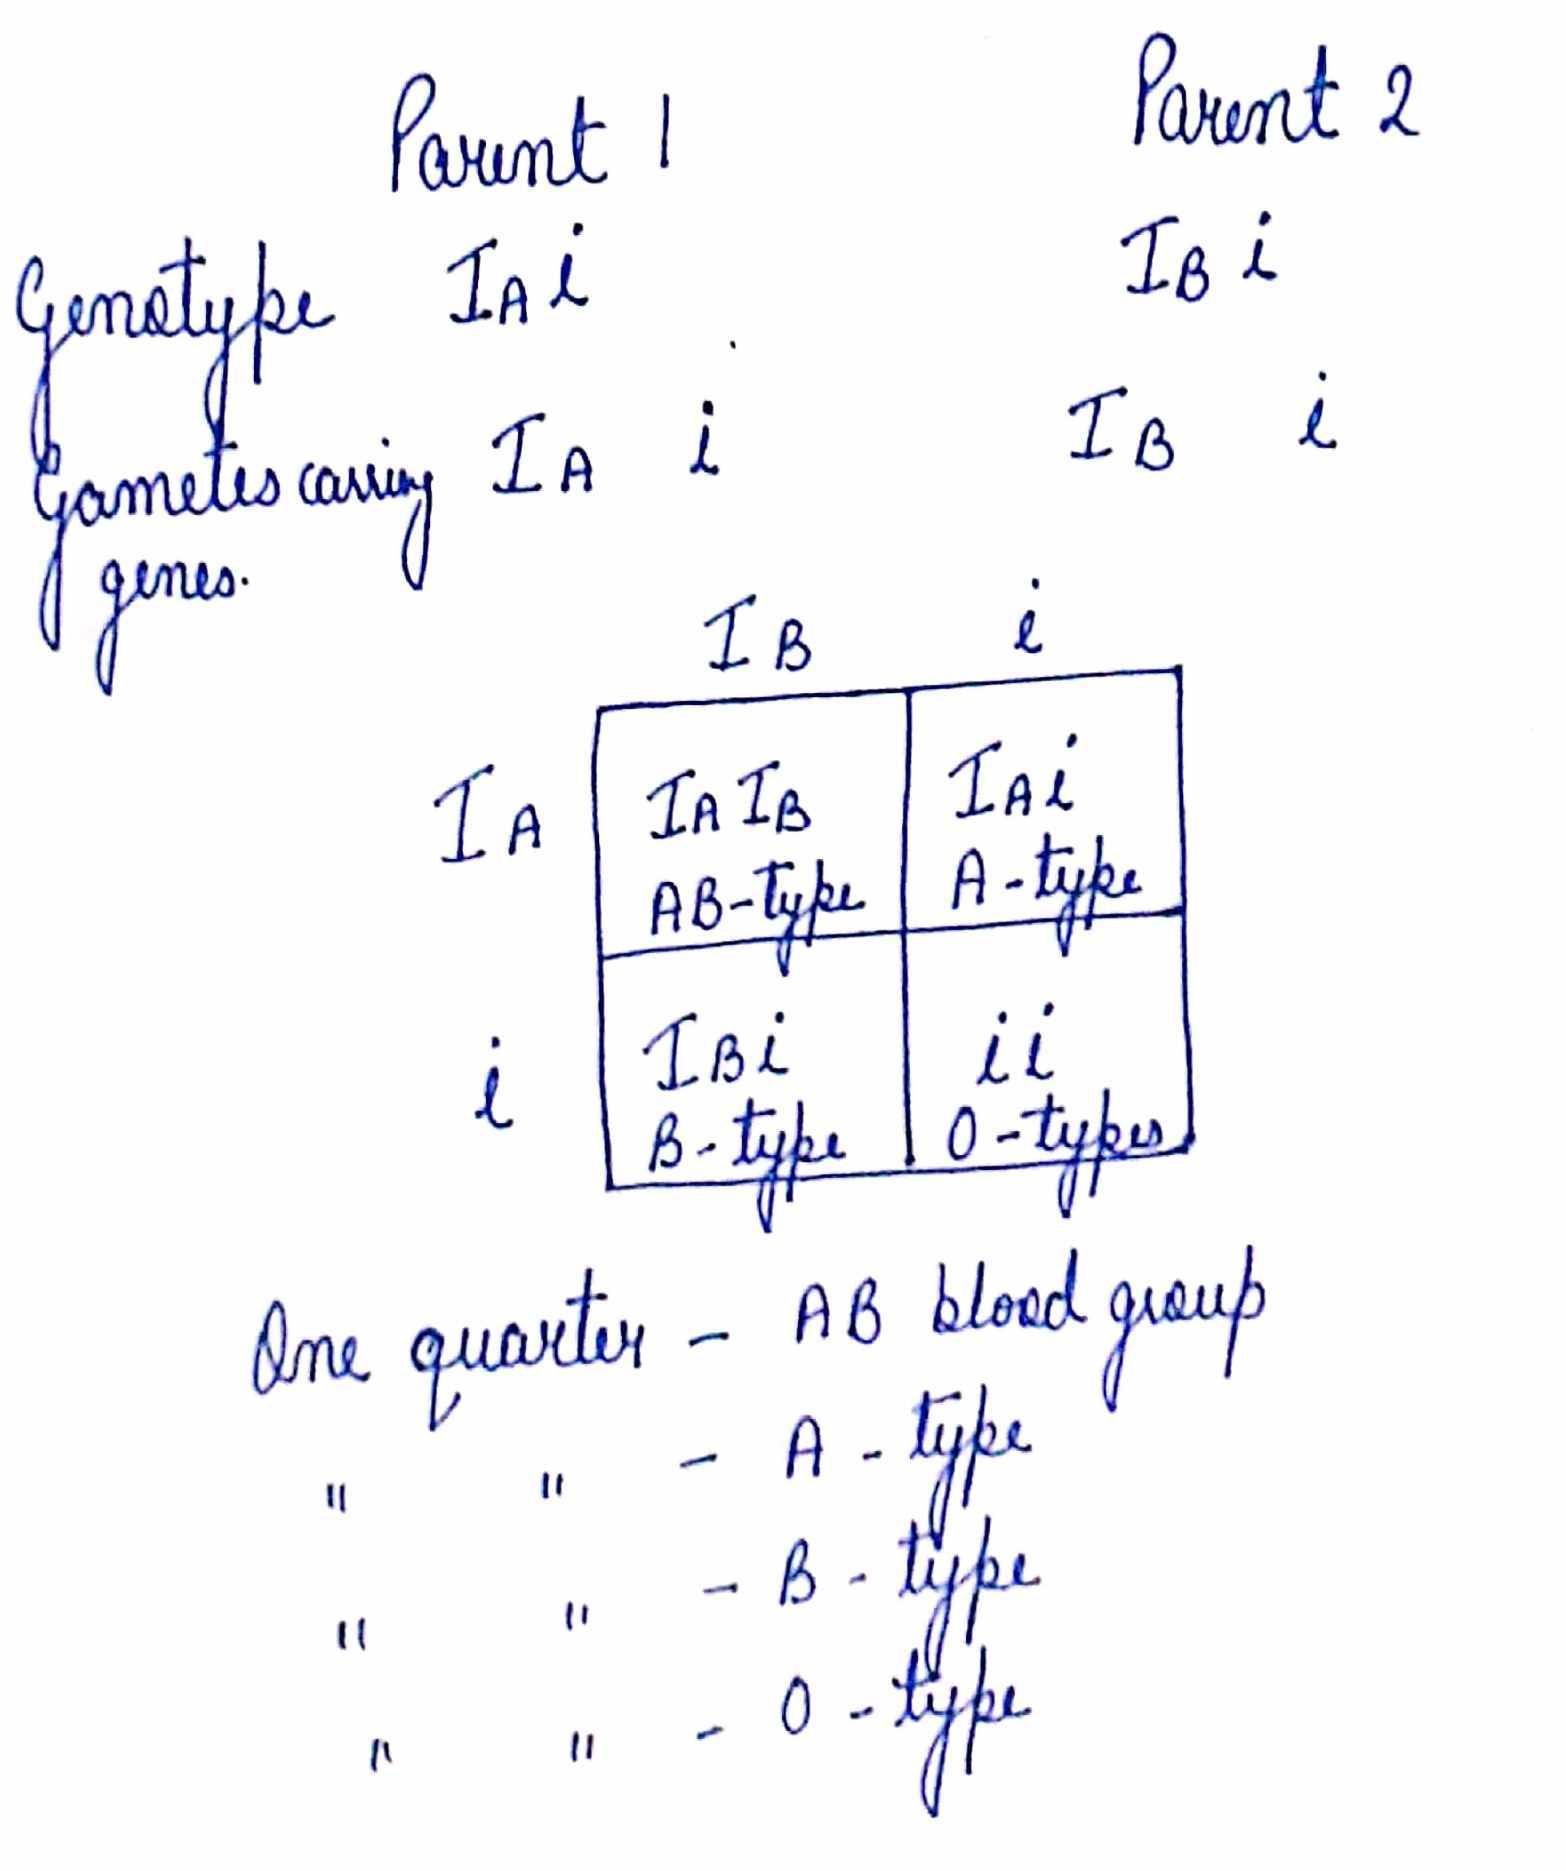 Parent 1 Parent 2
Genotype IA i IB i
Gametes carriny IA i IB i
genes.
IB i
IA IA IB IA i
AB-type A-type
i IB i i i
B-type O-types
One quarter - AB blood group
" " - A-type
" " - B-type
" " - O-type